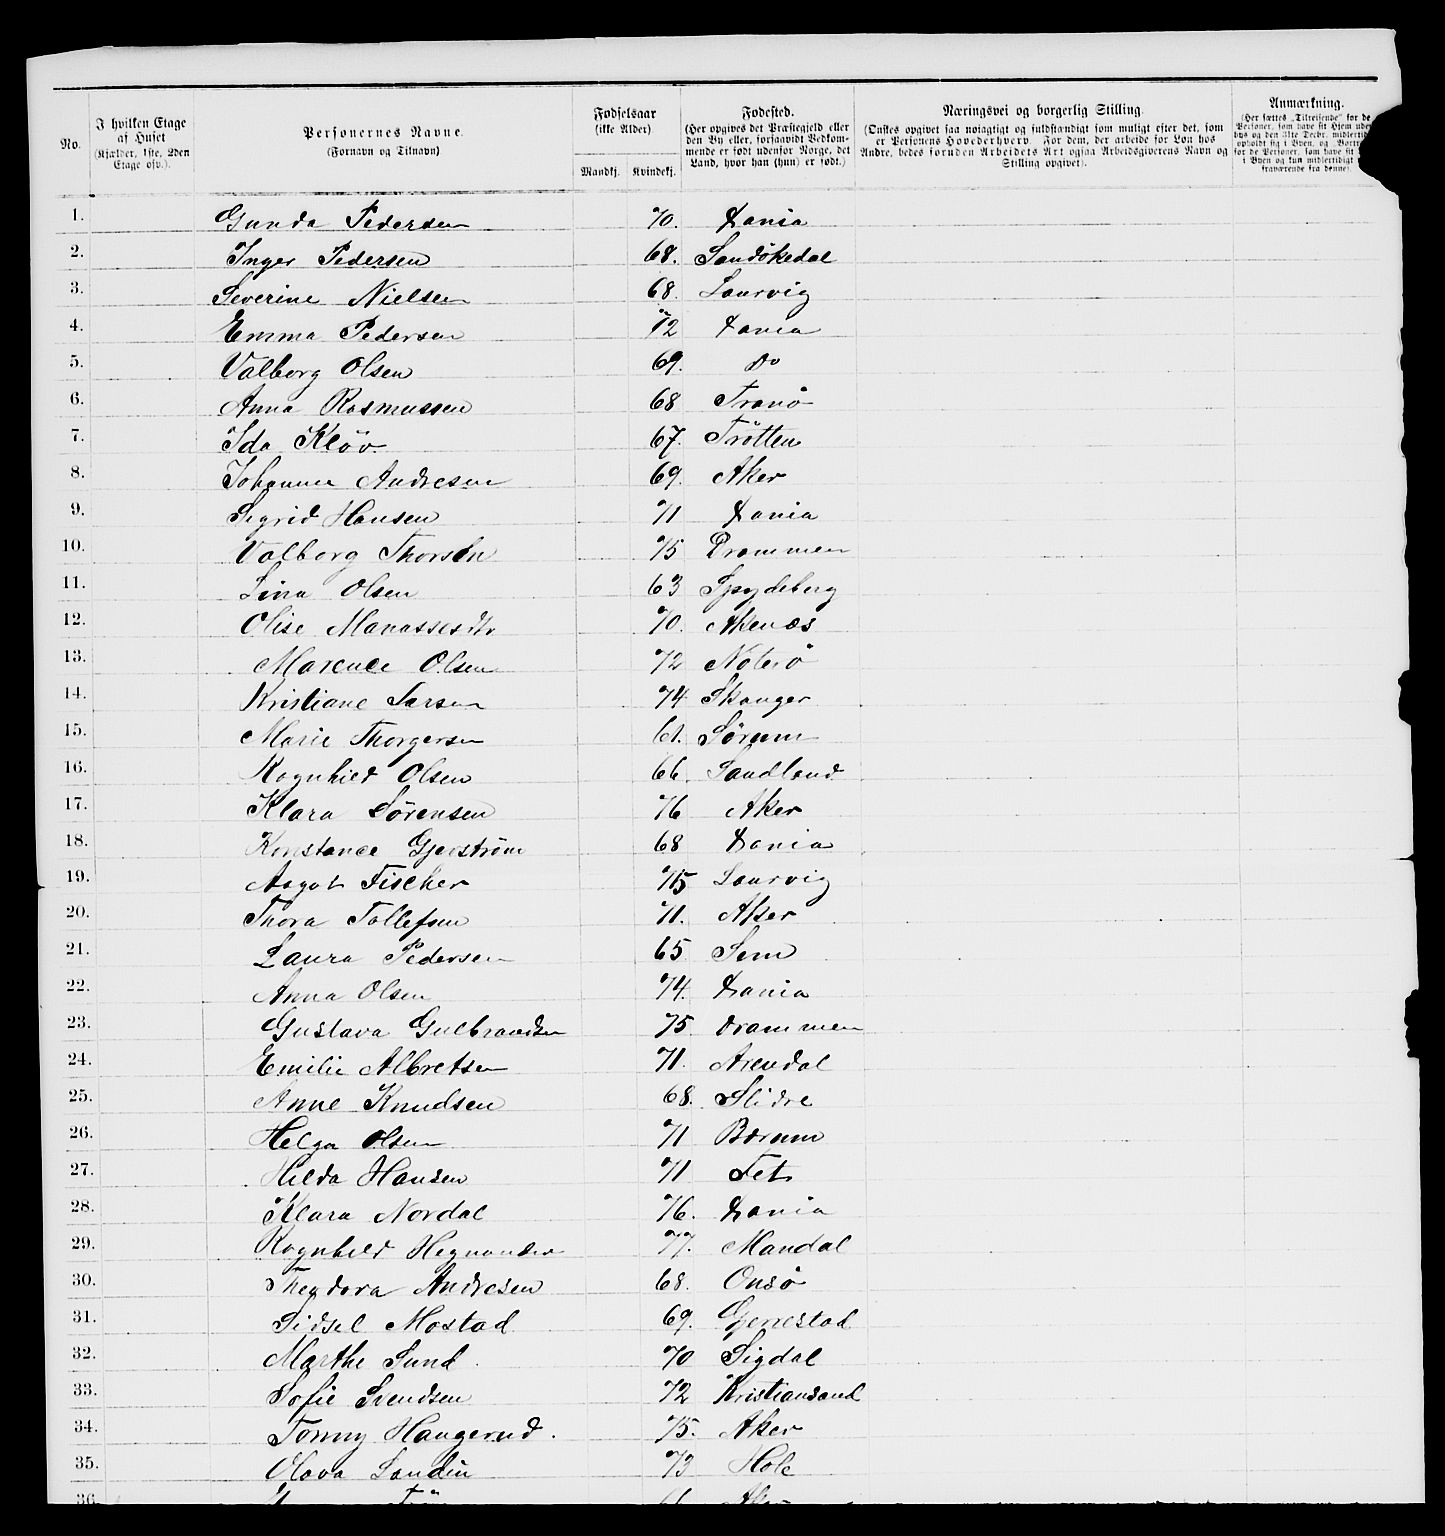 No.
I hvilken Etage af Huset (Kjælder, 1ste, 2den Etage osv.).
Personernes Navne. (Fornavn og Tilnavn)
Fødselsaar (ikke Alder)
Mandkj. Kvindekj.
Fødested. (Her opgives det Præstegjeld eller den By eller, forsaavidt Vedkommende er født udenfor Norge, det Land, hvor han (hun) er født.)
Næringsvei og borgerlig Stilling. (Ønskes opgivet saa nøiagtigt og fuldstændigt som muligt efter det, som er Personens Hovederhverv. For dem, der arbeide for Løn hos Andre, bedes foruden Arbeidets Art ogsaa Arbeidsgiverens Navn og Stilling opgivet).
Anmærkning. (Her sættes „Tilreisende" for de Personer, som have sit Hjem
1. Gunda Pedersen 70. Xania
2. Inger Pedersen 68. Sandökedal
3. Severine Nielsen 68. Laurvig
4. Emma Pedersen 72 Xania
5. Valborg Olsen 69. Do
6. Anna Rasmussen 68 Tranö
7. Ida Klöv. 67. Trötten
8. Johanne Andresen 69. Aker
9. Sigrid Hansen 71 Xania
10. Valborg Thorsen 75 Drammen
11. Lina Olsen 63 Spydeberg
12. Olise Manassesdtr 70. Akenæs
13. Marence Olsen 72 Noterö
14. Kristiane Larsen 74 Skanger
15. Marie Thorgersen 61. Sörum
16. Ragnhild Olsen 66. Sandland
17. Klara Sörensen 76 Aker
18. Konstance Gjerström 68 Xania
19. Aagot Fischer 75 Laurvig
20. Thora Tollefsen 71. Aker
21. Laura Pedersen 65 Sem
22. Anna Olsen 74. Xania
23. Gustava Gulbrandsen 75. Drammen
24. Emilie Albretsen 71. Arendal
25. Anne Knudsen 68. Slidre
26. Helga Olsen 71 Bærum
27. Hilda Hansen 71 Fet
28. Klara Nordal 76. Xania
29. Ragnhild 77. Mandal
30. Theodora Andresen 68. Onsö
31. Sidsel Mostad 69. Gjerestad
32. Marthe Lund 70 Sigdal
33. Sofie Svendsen 72 Kristiansand
34. Tommy Haugerud. 75. Aker
35. Olava Sandin 73 Hole
36.